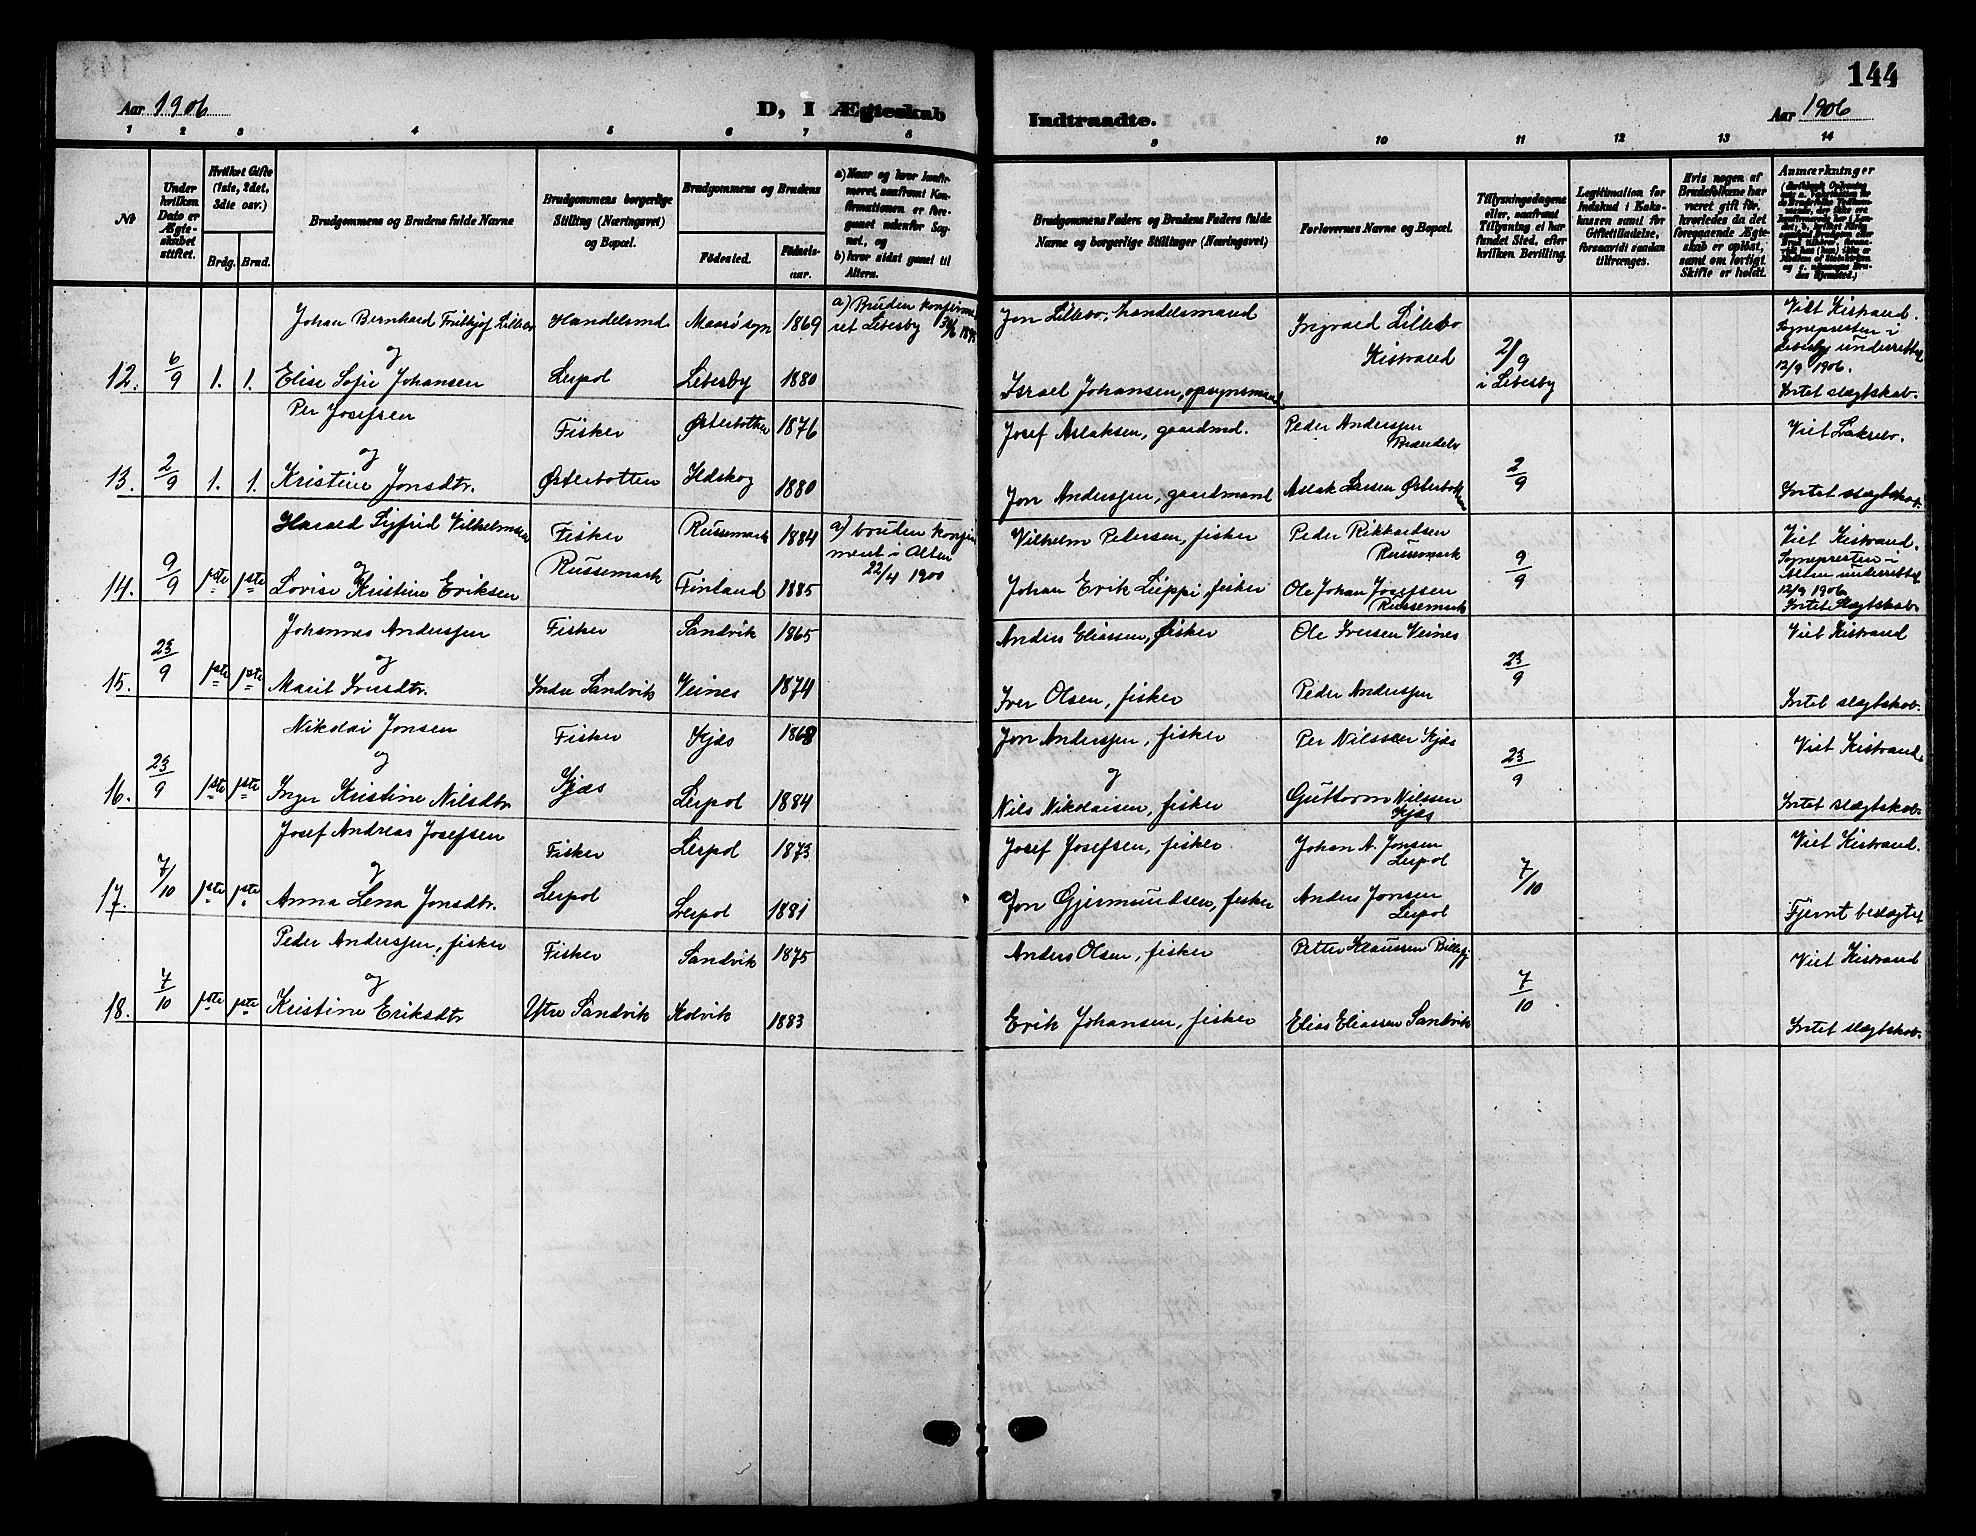 144
Aar 1906
D, I Ægteskab
Indtraadte.
Aar 1906
1 2 3 4 5 6 7 8
9 10 11 12 13 14
No
Under hvilken Dato er Ægteskabet stiftet.
Hvilket Gifte (1ste, 2det, 3die osv.)
Brdg. Brud.
Brudgommens og Brudens fulde Navne
Brudgommens borgerlige Stilling (Næringsvei) og Bopæl.
Brudgommens og Brudens
Fødested. Fødselsaar.
a) Naar og hvor konfirmeret, saafremt Konfirmationen er foregaaet udenfor Sognet, og
b) hvor sidst gaaet til Alters.
Brudgommens Faders og Brudens Faders fulde Navne og borgerlige Stillinger (Næringsvei)
Forlovernes Navne og Bopæl.
Tillysningsdagene eller, saafremt Tillysning ei har fundet Sted, efter hvilken Bevilling.
Legitimation for Indskud i Enkekassen samt for Giftetilladelse, forsaavidt saadan tiltrænges.
Hvis nogen af Brudefolkene har været gift før, hvorledes da det foregaaende Ægteskab er opløst, samt om lovligt Skifte er holdt.
Anmærkninger
12. 6/9 1. 1.
Johan Bernhard Frithjof Lillebo
og
Elise Sofie Johansen
Handelsmd
Leipol
Maasø sgn 1869
Lebesby 1880
a) Bruden konfirmeret Lebesby
Jon Lillebo, handelsmand
Israel Johansen, opsynsmand
Ingvald Lillebo
Kistrand
2/9
i Lebesby
Viet Kistrand.
Sognepresten i
Lebesby underrettet
12/9 1906.
Intet slægtskab.
13. 2/9 1. 1.
Per Josefsen
og
Kristine Jonsdtr.
Fisker
Østerbotten
Østerbotten 1876
Ildskog 1880
Josef Aslaksen, gaardmd.
Jon Anderssen, gaardmand
Peder Anderssen
Brændelv
Aslak Larsen Østerbotten
2/9
Viet Lakselv.
Intet slægtskab.
14. 9/9 1ste 1ste
Harald Sigfrid Vilhelmsen
og
Lovise Kristine Eriksen
Fisker
Russemark
Russemark 1884
Finland 1885
a) bruden konfirmert i Alten
22/4 1900
Vilhelm Petersen, fisker
Johan Erik Lieppi, fisker
Peder Rikkardsen
Russemark
Ole Johan Josefsen
Russemark
9/9
Viet Kistrand.
Sognepresten i
Alten underrettet
12/9 1906
Intet Slægtskab
15. 23/9 1ste 1ste
Johannes Anderssen
og
Marit Iversdtr.
Fisker
Indre Sandvik
Sandvik 1865
Veines 1874
Anders Eliassen, fisker
Iver Olsen, fisker
Ole Iversen Veines
Peder Anderssen
23/9
Viet Kistrand
Intet slægtskab.
16. 23/9 1ste 1ste
Nikolai Jonsen
og
Inger Kristine Nilsdtr.
Fisker
Kjæs
Kjæs 1868
Leipol 1884
Jon Anderssen, fisker
og
Nils Nikolaisen, fisker
Per Nilssen Kjæs
Guttorm Nilssen
Kjæs
23/9
Viet Kistrand
Intet slægtskab.
17. 7/10 1ste 1ste
Josef Andreas Josefsen
og
Anna Lena Jonsdtr.
Fisker
Leipol
Leipol 1873
Leipol 1881
Josef Josefsen, fisker
Jon Gjermundsen, fisker
Johan A. Jonsen
Leipol
Anders Jonsen
Leipol
7/10
Viet Kistrand.
Fjernt beslægtet
18. 7/10 1ste 1ste
Peder Anderssen, fisker
og
Kristine Eriksdtr
Fisker
Ytre Sandvik
Sandvik 1875
Kolvik 1883
Anders Olsen, fisker
Erik Johansen, fisker
Petter Klaussen Billefj
Elias Eliassen Sandvik
7/10
Viet Kistrand
Intet slægtskab.